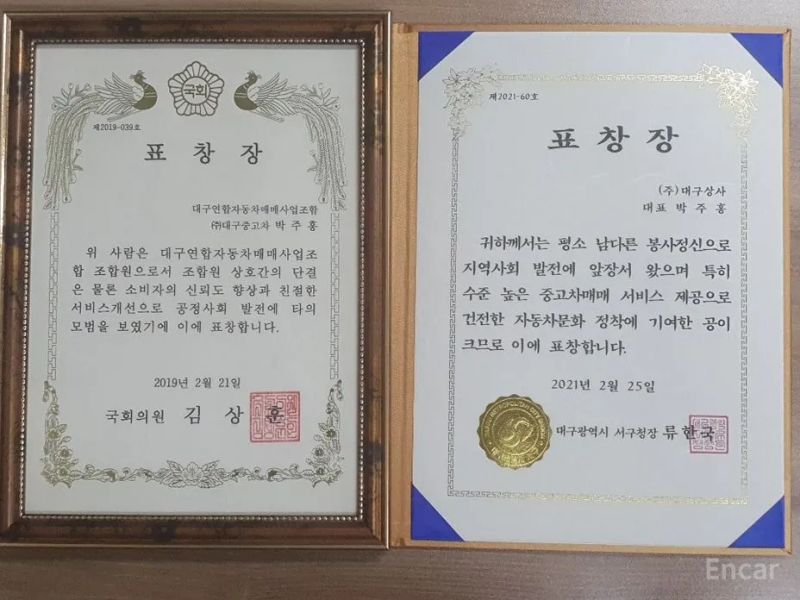 국회
제2019-039호
표 창 장
대구연합자동차매매사업조합
㈜대구중고차 박 주 홍
위 사람은 대구연합자동차매매사업조
합 조합원으로서 조합원 상호간의 단결
은 물론 소비자의 신뢰도 향상과 친절한
서비스개선으로 공정사회 발전에 타의
모범을 보였기에 이에 표창합니다.
2019년 2월 21일
국회의원 김 상 훈
제2021-60호
표 창 장
(주)대구상사
대표 박 주 홍
귀하께서는 평소 남다른 봉사정신으로
지역사회 발전에 앞장서 왔으며 특히
수준 높은 중고차매매 서비스 제공으로
건전한 자동차문화 정착에 기여한 공이
크므로 이에 표창합니다.
2021년 2월 25일
대구광역시 서구청장 류한국
Encar